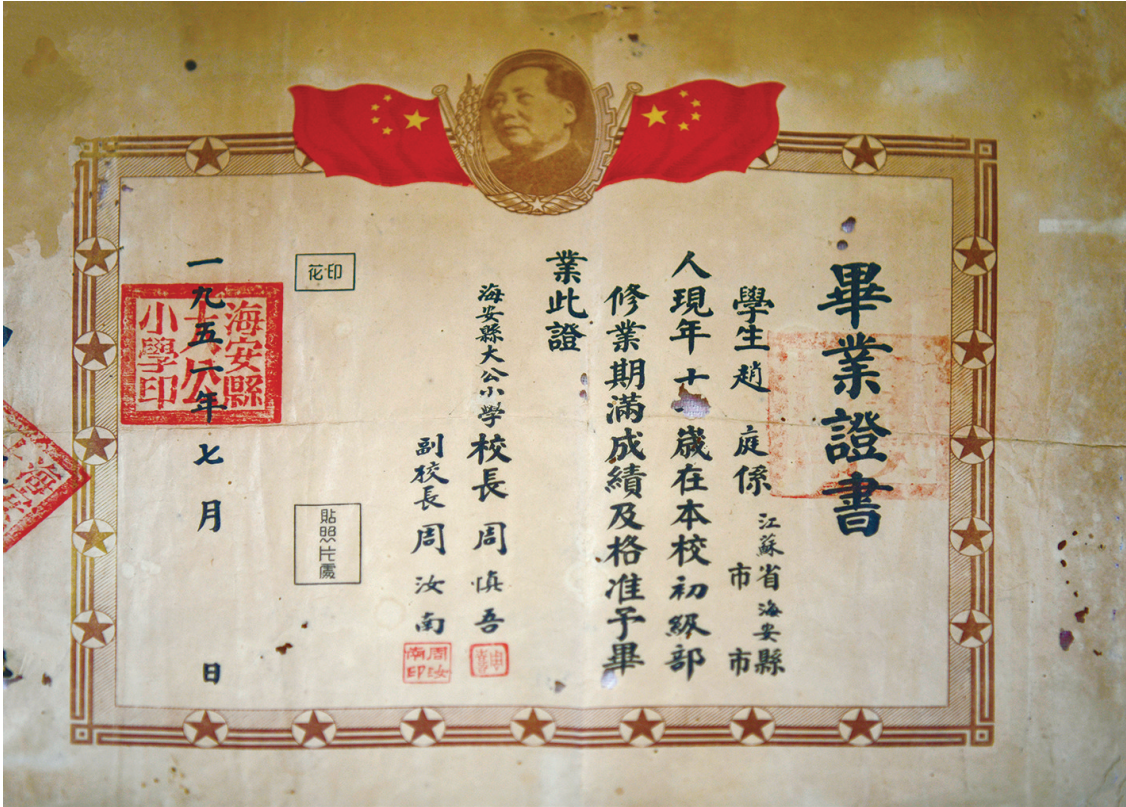 畢業證書
學生趙 庭係 江蘇省 市 海安縣 市
人現年十 歲在本校初級部
修業期滿成績及格准予畢
業此證
海安縣大公小學校長 周慎吾
副校長 周汝南
周汝南印
印花
貼照片處
一九五 年七月 日
海安縣大公小學印
海安